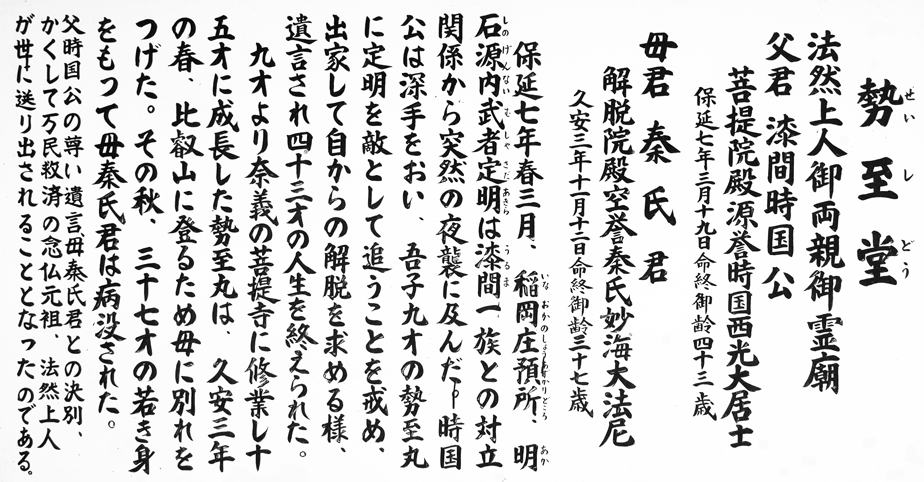 勢至堂
法然上人御両親御霊廟
父君 漆間時国公
菩提院殿源誉時国西光大居士
保延七年三月十九日命終御齢四十三歳
母君 秦氏君
解脱院殿空誉秦氏妙海大法尼
久安三年十一月十二日命終御齢三十七歳
保延七年春三月、稲岡庄預所、明
石源内武者定明は漆間一族との対立
関係から突然の夜襲に及んだ――時国
公は深手をおい、吾子九才の勢至丸
に定明を敵として追うことを戒め、
出家して自からの解脱を求める様、
遺言され四十三才の人生を終えられた。
九才より奈義の菩提寺に修業し十
五才に成長した勢至丸は、久安三年
の春、比叡山に登るため母に別れを
つげた。その秋、三十七才の若き身
をもって母秦氏君は病没された。
父時国公の尊い遺言母秦氏君との決別、
かくして万民救済の念仏元祖、法然上人
が世に送り出されることとなったのである。